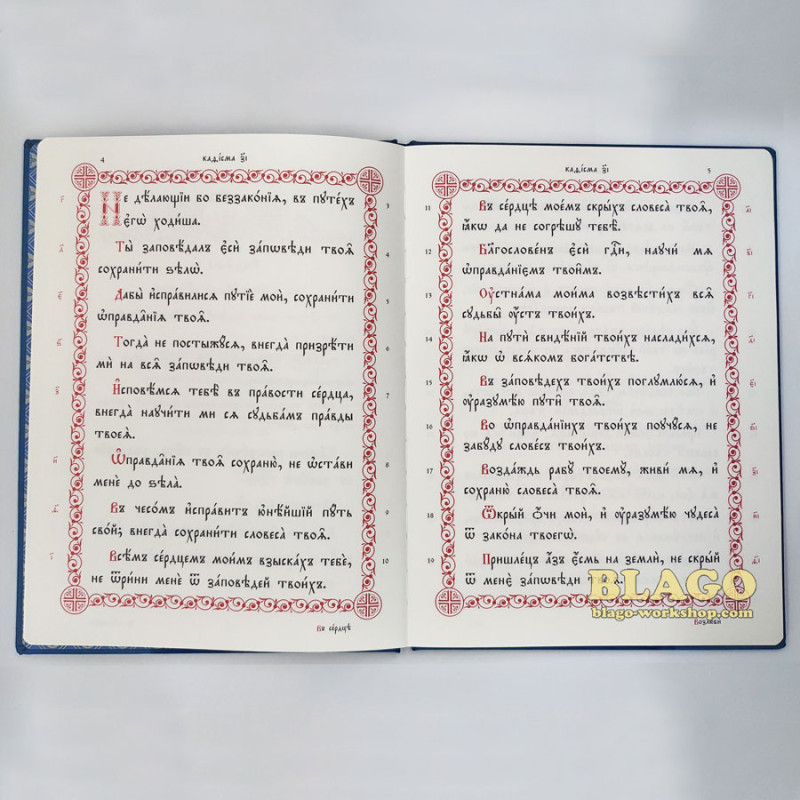 4
каѳі́сма з҃і
Не дѣ́лающїи бо беззако́нїѧ, въ пꙋте́хъ
є҆гѡ̀ ходи́ша.
3
Ты̀ заповѣ́далъ є҆сѝ за́пѡвѣди твоѧ̑
сохрани́ти ѕѣлѡ̀.
Дабы̀ и҆спра́вилисѧ пꙋтїе́ моѝ, сохрани́ти
ѡ҆правда̑нїѧ твоѧ̑.
Тогда̀ не постыжꙋ́сѧ, внегда̀ призрѣ́ти
мѝ на всѧ̑ за́пѡвѣди твоѧ̑.
И҆сповѣ́мсѧ тебѣ̀ въ пра́вости се́рдца,
7
внегда̀ наꙋчи́ти ми сѧ сꙋдьба́мъ пра́вды
твоеѧ̀.
Ѡ҆правда̑нїѧ твоѧ̑ сохраню̀, не ѡ҆ста́ви
8
менѐ до ѕѣла̀.
Въ чесо́мъ и҆спра́витъ ю҆нѣ́йшїй пꙋ́ть
9
сво́й; внегда̀ сохрани́ти словеса̀ твоѧ̑.
Всѣ́мъ се́рдцемъ мои́мъ взыска́хъ тебѐ,
10
не ѿри́ни менѐ ѿ за́повѣдей твои́хъ.
Въ се́рдцѣ
каѳі́сма з҃і
5
11
Въ се́рдцѣ мое́мъ скры́хъ словеса̀ твоѧ̑,
ꙗ҆́кѡ да не согрѣшꙋ̀ тебѣ̀.
12
Благослове́нъ є҆сѝ гдⷭ҇и, наꙋчи́ мѧ
ѡ҆правда́нїємъ твои̑мъ.
13
Оу҆стнама мои́ма возвѣсти́хъ всѧ̑
сꙋдьбы̑ ᲂу҆́стъ твои́хъ.
14
На пꙋтѝ свидѣ́нїй твои́хъ наслади́хсѧ,
ꙗ҆́кѡ ѡ҆ всѧ́комъ бога́тствѣ.
15
Въ за́повѣдехъ твои́хъ поглꙋмлю́сѧ, и҆
ᲂу҆разꙋмѣ́ю пꙋти̑ твоѧ̑.
16
Во ѡ҆правда́нїихъ твои́хъ поꙋчꙋ́сѧ, не
забꙋ́дꙋ слове́съ твои́хъ.
17
Возда́ждь рабꙋ̀ твоемꙋ̀, живи́ мѧ, и҆
сохраню̀ словеса̀ твоѧ̑.
18
Ѿкры́й ѻ҆́чи моѝ, и҆ ᲂу҆разꙋмѣ́ю чꙋдеса̀
ѿ зако́на твоегѡ̀.
19
Пришле́цъ а҆́зъ є҆́смь на землѝ, не скры́й
ѿ менє̀ за́пѡвѣди твоѧ̑.
Возлюбѝ
BLAGO
blago-workshop.com